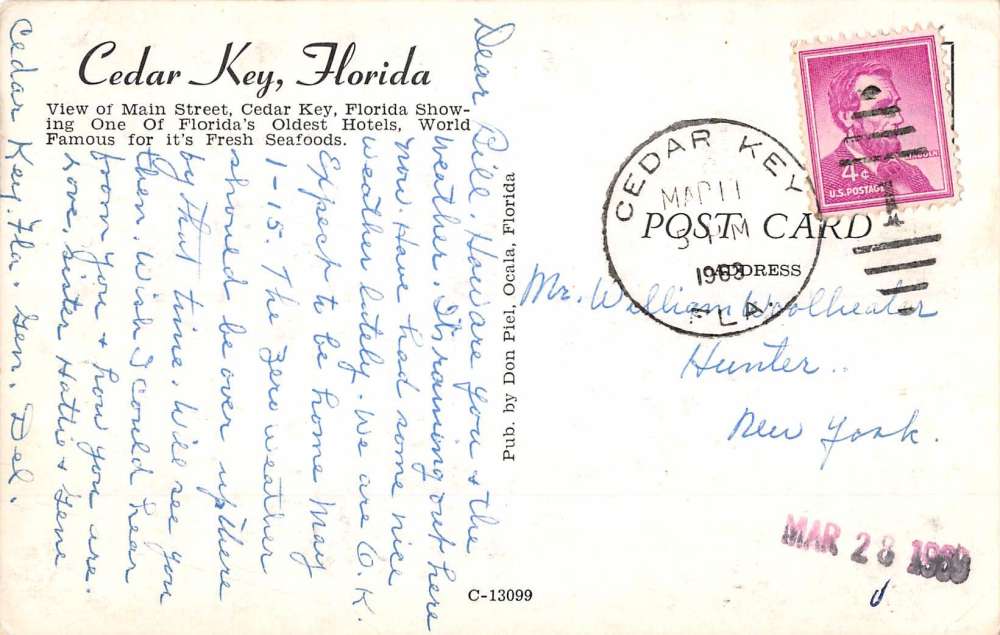 Cedar Key, Florida
View of Main Street, Cedar Key, Florida Show-
ing One Of Florida's Oldest Hotels, World
Famous for it's Fresh Seafoods.
Dear Bill. How are you & the
weather. It's raining out here
now. Have had some nice
weather lately. We are O.K.
Expect to be home May
1-15. The zero weather
should be over up there
by that time. Will see you
then. Wish I could hear
from you & how you are.
Love, sister Hattie & Gene
Cedar Key. Fla. Gen. Del.
Pub. by Don Piel, Ocala, Florida
C-13099
CEDAR KEY
MAR 11
PM
FLA.
LINCOLN
4¢
U.S. POSTAGE
POST CARD
ADDRESS
Mr. William Woolheater
Hunter..
New York.
MAR 28